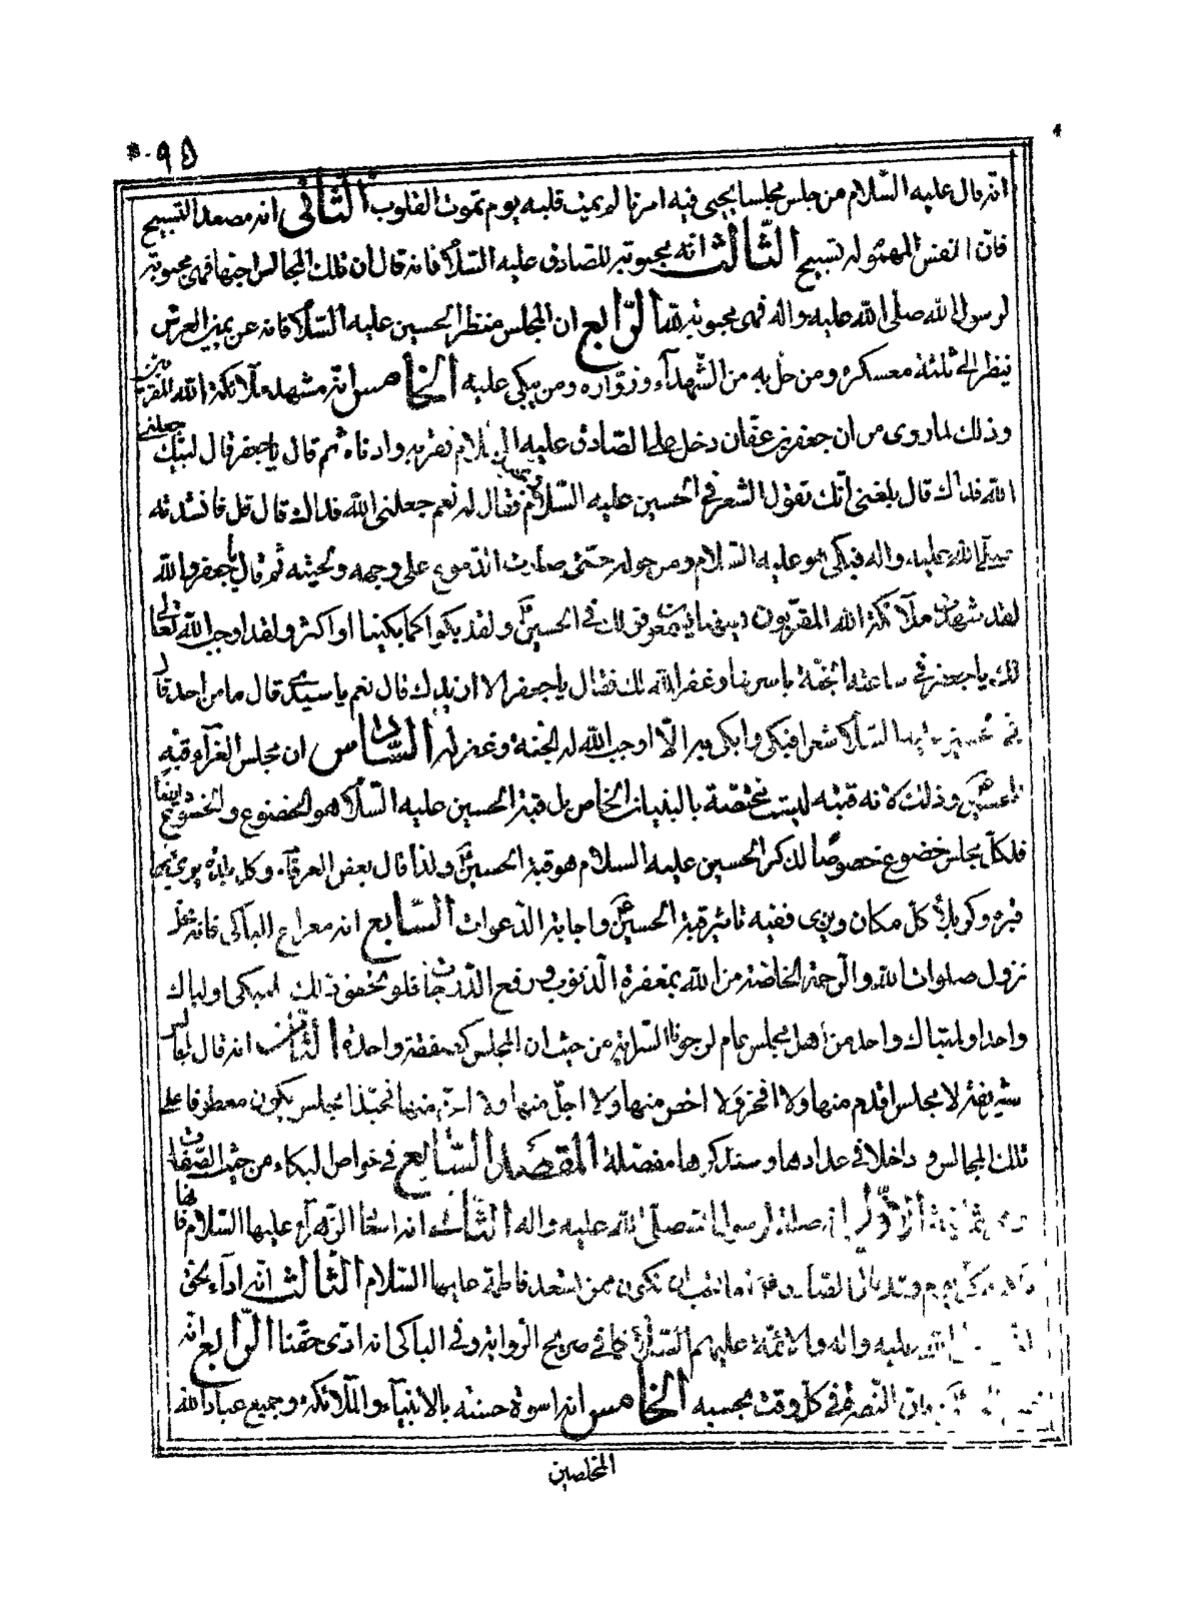 ۹۵
انه قال عليه السّلام من جلس مجلسا يحيى فيه امرنا لم يمت قلبه يوم تموت القلوب الثّانى انه مصعد التسبيح
فان النفس المهموله تسبيح الثّالث انه محبوبة للصادق عليه السّلام فانه قال ان تلك المجالس احبها فهى محبوبة
لرسول الله صلى الله عليه واله فهى محبوبة لله الرّابع ان المجلس منظر الحسين عليه السّلام فانه عن يمين العرش
ينظر الى ثلثة معسكره ومن حل به من الشّهدآء وزوّاره ومن يبكى عليه الخامس انه مشهد ملآئكة الله المقربين
وذلك لما روى من ان جعفر بن عفّان دخل على الصّادق عليه السلام فقربه وادناه ثم قال يا جعفر قال لبيك جعلنى
الله فداك قال بلغنى انّك تقول الشعر فى الحسين عليه السّلام فقال له نعم جعلنى الله فداك قال قل فانشدته
عليه واله فبكى هو عليه السّلام ومن حوله حتّى صارت الدّموع على وجهه ولحيته ثم قال يا جعفر والله
لقد شهدك ملآئكة الله المقرّبون قولك فى الحسين ولقد بكوا كما بكينا او اكثر ولقد اوجب الله تعالى
لك يا جعفر فى ساعته الجنّة باسرها وغفر الله لك فقال يا جعفر الا ازيدك قال نعم يا سيدى قال ما من احد قال
فى السّلام شعرا فبكى وابكى به الّا اوجب الله له الجنة وغفر له السّادس ان مجلس العزآء قبّة
الحسين وذلك لانه قبته ليست مختصّة بالبنيان الخاص بل قبة الحسين عليه السّلام هو الخضوع والخشوع
فلكلّ مجلس خضوع خصوصًا لذكر الحسين عليه السلام هو قبة الحسين ولذا قال بعض العرفآء وكل بلدة يرى
قبره وكربلا كلّ مكان ويرى ففيه تاثير قبة الحسين واجابة الدّعوات السّابع انه معراج الباكى فانه محلّ
نزول صلوات الله والرّحمة الخاصّة من الله بمغفرة الذّنوب ورفع الدّرجات فلو تحقق ذلك لبكى او لباك
واحد او لتباك واحد من اهل مجلس عام لرجونا السراية من حيث ان المجلس كصفقة واحدة الثّامن انه قال
شريفة لا مجلس اقدم منها ولا افخر ولا اخص منها ولا اجلّ منها ولا منها فحبّذا مجلس يكون معطوفا على
تلك المجالس وداخلا فى عدادها وسنذكرها مفصّلة المقصد السّابع فى خواص البكاء من حيث الصّفات
وهى ثمانية الاوّل انه صلة لرسول الله صلى الله عليه واله الثّانى انه اسعاد الزّهرآء عليها السّلام فانها
يوم قال الصّادق اما تحب ان تكون ممن اسعد فاطمة عليها السّلام الثّالث انه ادآء لحق
عليه واله والائمّة عليهم السّلام كما فى صريح الرّواية وفى الباكى انه ادّى حقّنا الرّابع انه
النّصرة فى كلّ وقت بحسبه الخامس انه اسوة حسنة بالانبيآء والملآئكة وجميع عباد الله
المخلصين